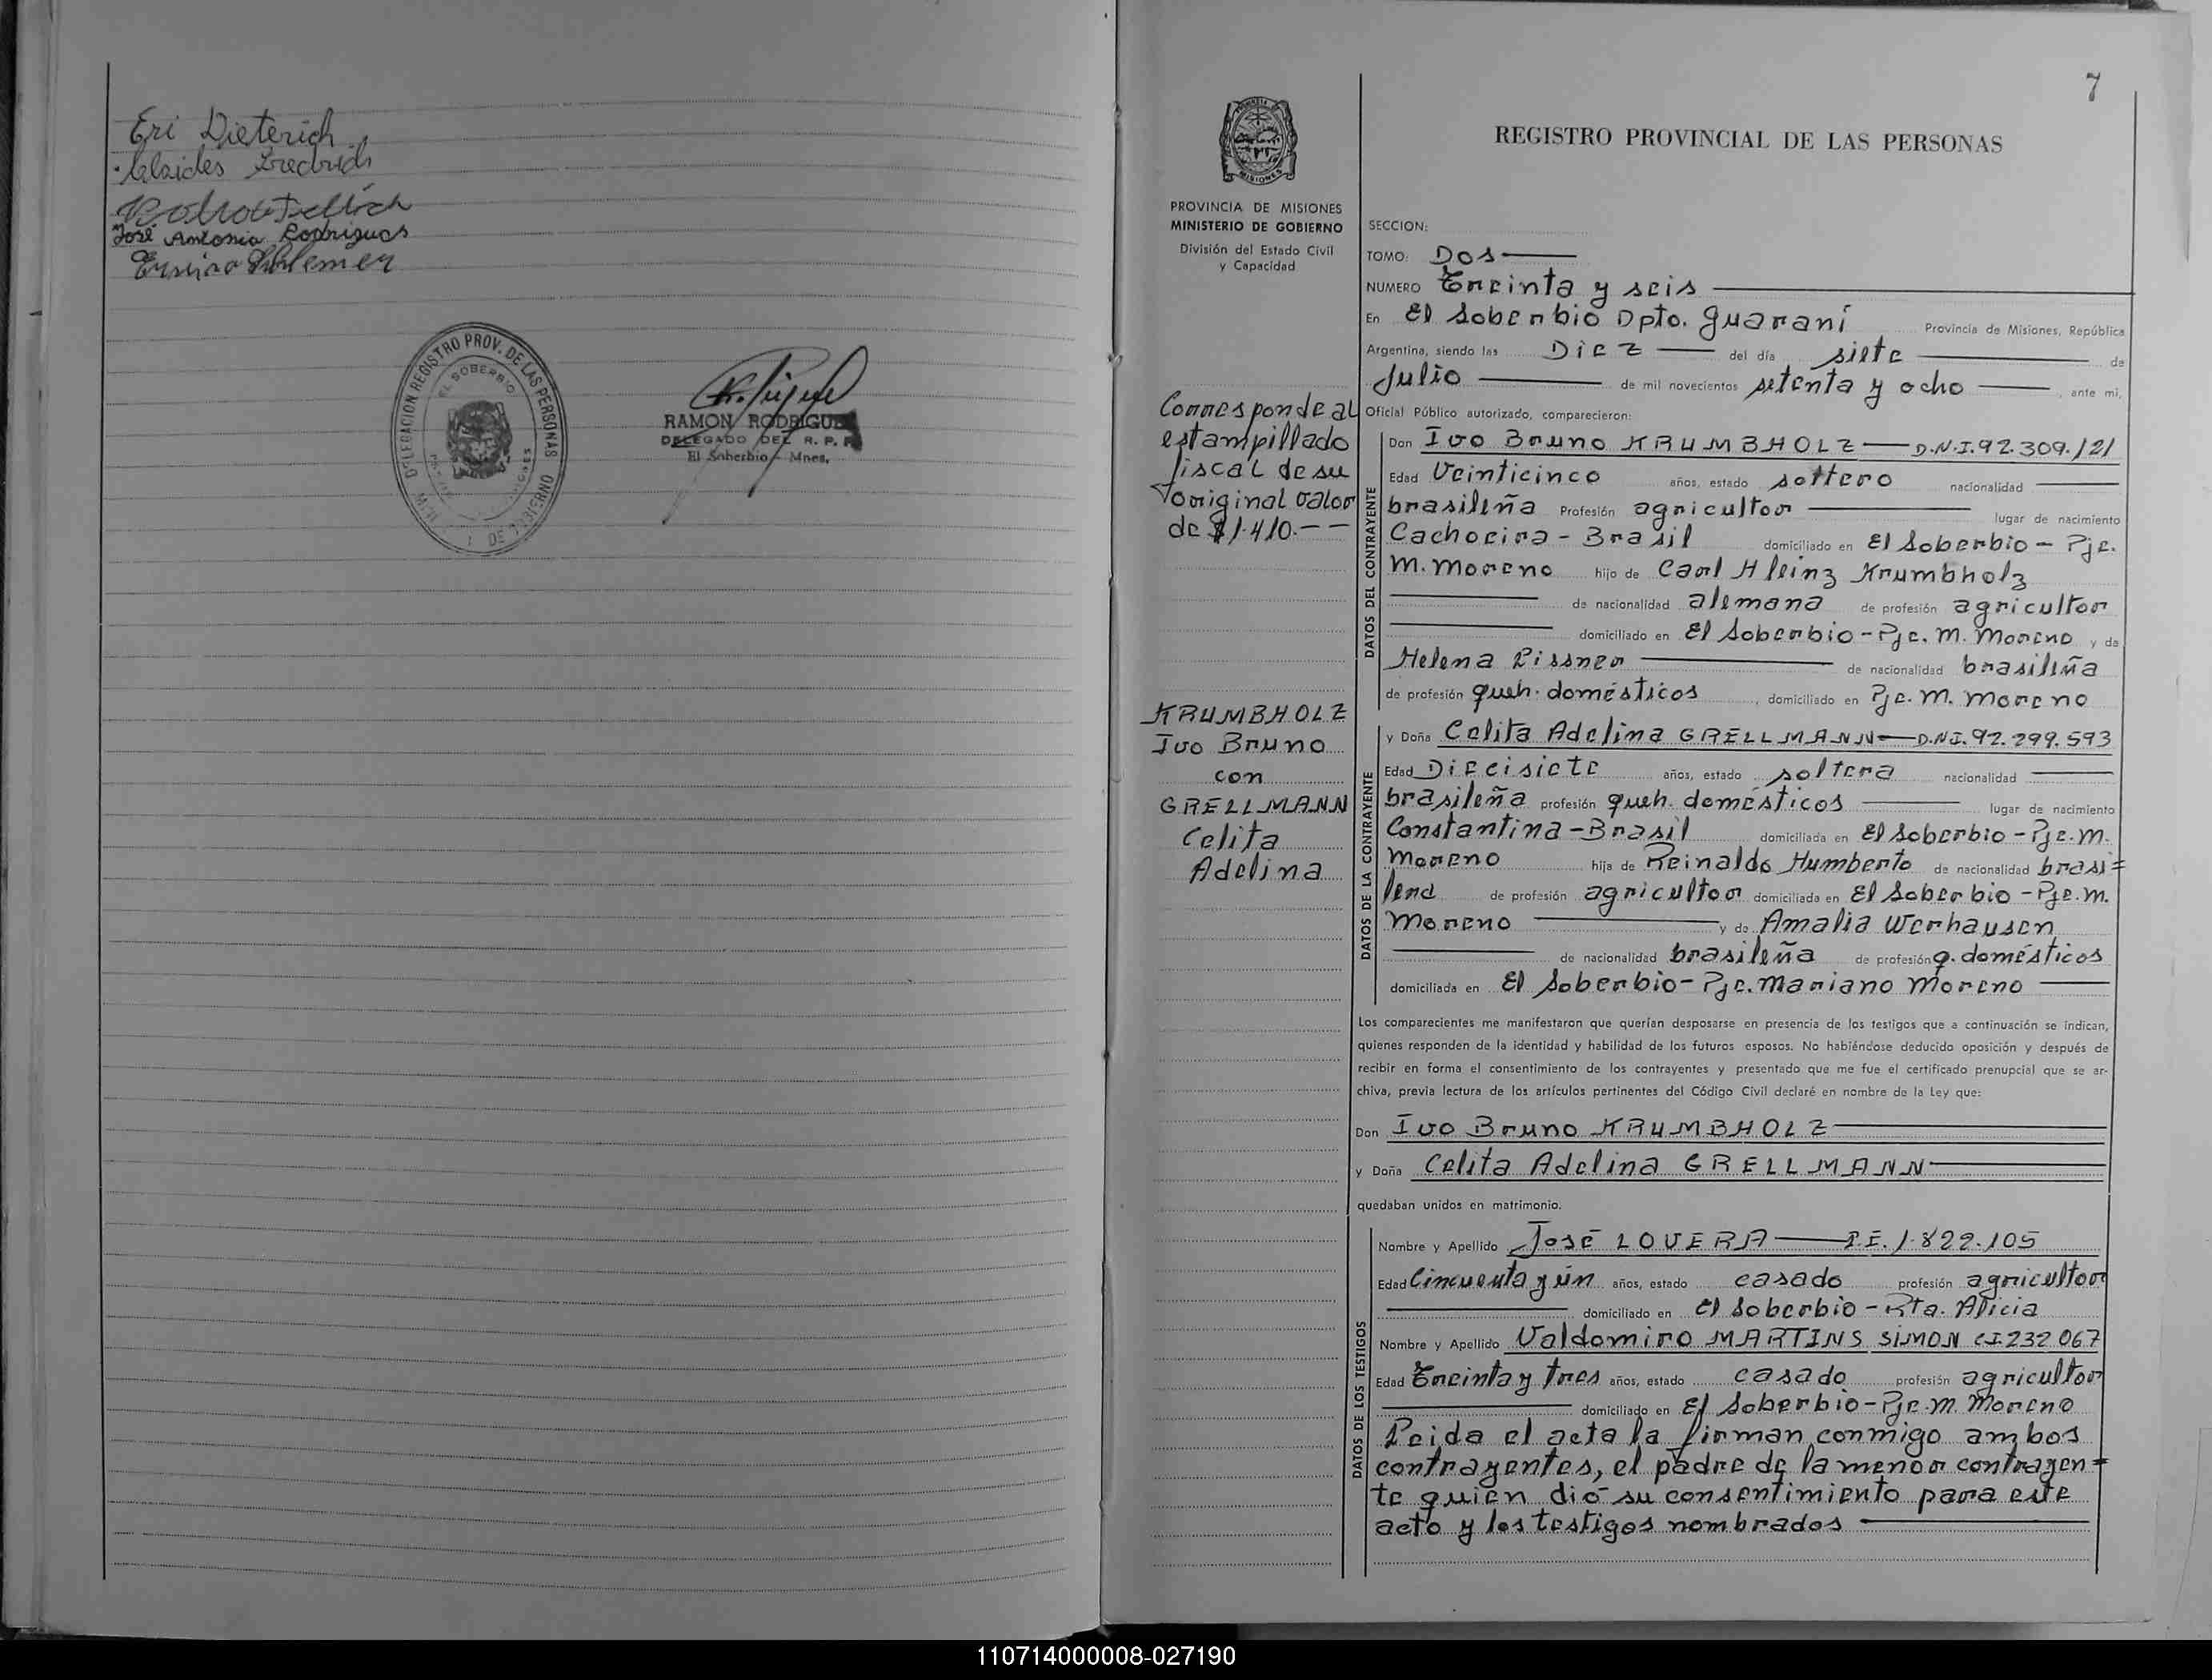 Eri Dieterich
José Antonio Rodrigues
DELEGACION REGISTRO PROV. DE LAS PERSONAS
EL SOBERBIO
RAMON RODRIGUEZ
DELEGADO DEL R. P. P.
El Soberbio - Mnes.
7
REGISTRO PROVINCIAL DE LAS PERSONAS
MISIONES
PROVINCIA DE MISIONES
MINISTERIO DE GOBIERNO
División del Estado Civil
y Capacidad
Corresponde al
estampillado
fiscal de su
original valor
de $1.410.--
KRUMBHOLZ
Ivo Bruno
con
GRELLMANN
Celita
Adelina
SECCION:
TOMO: Dos
NUMERO Treinta y seis
En El Soberbio Dpto. Guaraní Provincia de Misiones, República
Argentina, siendo las Diez del día siete de
Julio de mil novecientos setenta y ocho, ante mi,
Oficial Público autorizado, comparecieron:
DATOS DEL CONTRAYENTE
Don Ivo Bruno KRUMBHOLZ — D.N.I. 92.309.121
Edad Veinticinco años, estado soltero nacionalidad
brasileña Profesión agricultor lugar de nacimiento
Cachoeira - Brasil domiciliado en El Soberbio - Pje.
M. Moreno hijo de Carl Heinz Krumbholz
de nacionalidad alemana de profesión agricultor
domiciliado en El Soberbio - Pje. M. Moreno y de
Helena Lissner de nacionalidad brasileña
de profesión queh. domésticos, domiciliado en Pje. M. Moreno
DATOS DE LA CONTRAYENTE
y Doña Celita Adelina GRELLMANN — D.N.I. 92.299.593
Edad Diecisiete años, estado soltera nacionalidad
brasileña profesión queh. domésticos lugar de nacimiento
Constantina - Brasil domiciliada en El Soberbio - Pje. M.
Moreno hija de Reinaldo Humberto de nacionalidad brasi=
lena de profesión agricultor domiciliada en El Soberbio - Pje. M.
Moreno y de Amalia Werhausen
de nacionalidad brasileña de profesión q. domésticos
domiciliada en El Soberbio - Pje. Mariano Moreno
Los comparecientes me manifestaron que querían desposarse en presencia de los testigos que a continuación se indican,
quienes responden de la identidad y habilidad de los futuros esposos. No habiéndose deducido oposición y después de
recibir en forma el consentimiento de los contrayentes y presentado que me fue el certificado prenupcial que se ar-
chiva, previa lectura de los artículos pertinentes del Código Civil declaré en nombre de la Ley que:
Don Ivo Bruno KRUMBHOLZ
y Doña Celita Adelina GRELLMANN
quedaban unidos en matrimonio.
DATOS DE LOS TESTIGOS
Nombre y Apellido José LOVERA — L.E. 1.822.105
Edad Cincuenta y ún años, estado casado profesión agricultor
domiciliado en El Soberbio - Rta. Alicia
Nombre y Apellido Valdomiro MARTINS SIMON C.I 232 067
Edad Treinta y tres años, estado casado profesión agricultor
domiciliado en El Soberbio - Pje. M. Moreno
Leida el acta la firman conmigo ambos
contrayentes, el padre de la menor contrayen=
te quien dió su consentimiento para este
acto y los testigos nombrados
110714000008-027190